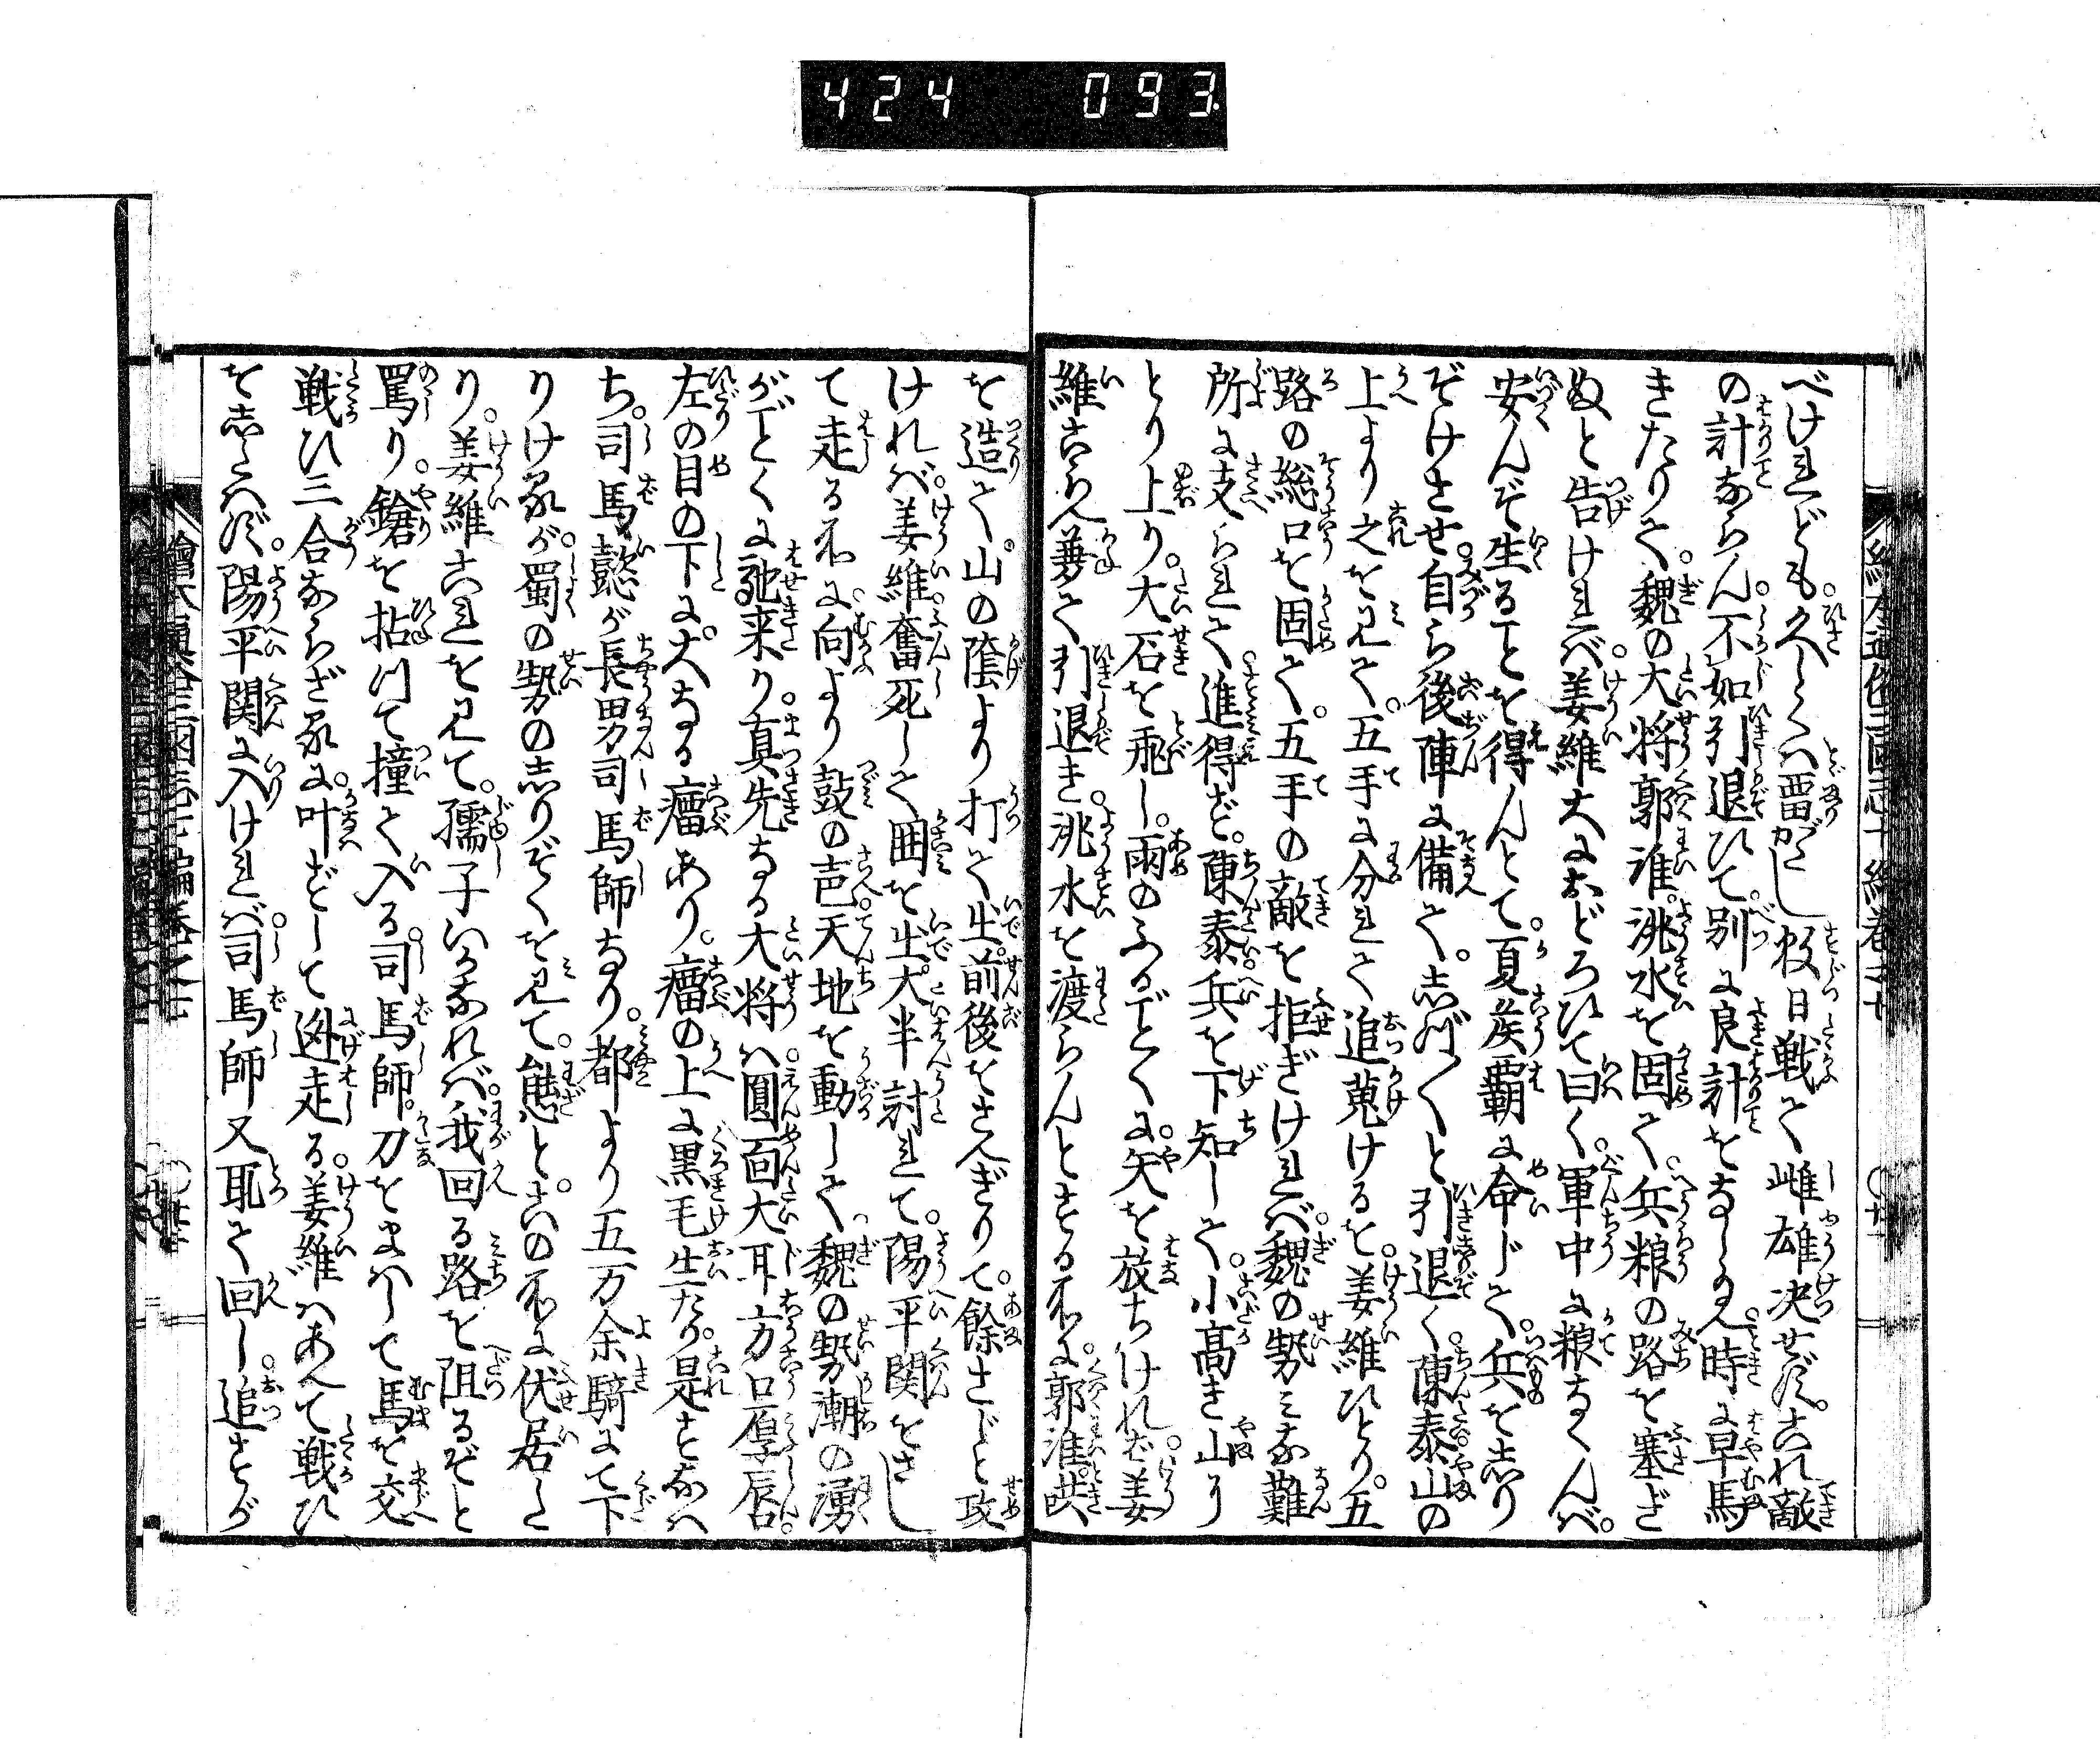 424 093
べけれども。久しくハ畱がたし数日戦て雌雄决せず。これ敵
の計ならん。不如引退ひて。別に良計をなしたまへ。時に早馬
きたりて。魏の大将郭淮。洮水を固て。兵粮の路を塞ぎ
ぬと告けれバ。姜維大におどろひて曰く。軍中に粮なくんバ。
安んぞ生ることを得んとて。夏矦覇に命じて。兵をしり
ぞけさせ。自ら後陣に備て。しづ〱と引退く。陳泰山の
上より之を見て。五手に分れて追蒐けるを。姜維ひとり。五
路の総口を固て。五手の敵を拒ぎけれバ。魏の㔟ミな難
所に支られて進得ず。陳泰兵を下知して。小高き山に
とり上り。大石を飛し。雨のふるごとくに。矢を放ちけれバ。姜
維こらへ兼て引退き。洮水を渡らんとする所に。郭淮関
を造て。山の蔭より打て出。前後をさへぎりて。餘さじと攻
けれバ。姜維奮死して囲を出。大半討れて。陽平関をさし
て走る所に。向より鼓の声。天地を動して。魏の㔟潮の湧
がごとくに馳来り。真先なる大将ハ。圓面大耳方口厚唇。
左の目の下に。大なる瘤あり。瘤の上に黒毛生たり。是すなハ
ち。司馬懿が長男司馬師なり。都より五万余騎にて下
りけるが。蜀の㔟のしりぞくを見て。態と。この所に伏居た
り。姜維これを見て。孺子いかなれバ。我回る路を阻るぞと
罵り。鎗を拈つて撞て入る。司馬師。刀をまハして馬を交
戦ひ三合ならざるに。叶ずして迯走る。姜維ハあへて戦ひ
をしたハず。陽平関に入けれバ。司馬師又取て回し。追すが